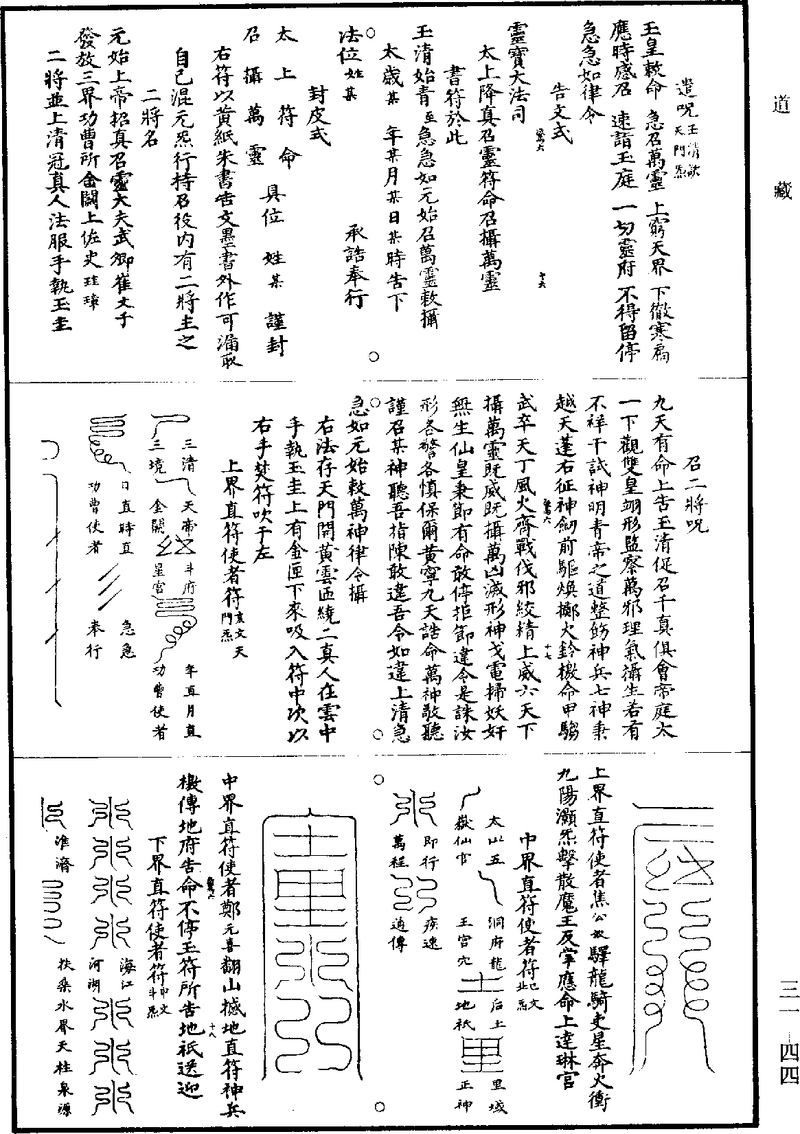 道藏
三一 四四
遣咒玉清訣天門炁
玉皇敕命 急召萬靈 上窮天界 下徹寒扃
應時感召 速詣玉庭 一切靈府 不得留停
急急如律令
告文式
靈寶大法司
太上降真召靈符命召攝萬靈
書符於此
玉清始青至急急如元始召萬靈敕攝
太歲某 年某月某日某時告下
法位姓某 承誥奉行
封皮式
太上符命 具位 姓某 謹封
召攝萬靈
右符以黃紙朱書告文墨書外作可漏取
自己混元炁行持召役內有二將主之
二將名
元始上帝招真召靈大夫武卿崔文子
發放三界功曹所金闕上佐史珪璋
二將並上清冠真人法服手執玉圭
召二將咒
九天有命上告玉清促召千真俱會帝庭太
一下觀雙皇翊形監察萬邪理氣攝生若有
不祥干試神明青帝之道整飭神兵七神秉
越天蓬右征神劒前驅煥擲火鈴檄命甲騶
武卒天丁風火齊戰伐邪絞精上威六天下
攝萬靈既威既攝萬凶滅形神戈電掃妖奸
無生仙皇秉節有命敢停拒節違令是誅汝
形各警各慎保爾黃寧九天誥命萬神敬聽
謹召某神聽吾指陳敢違吾令如違上清急
急如元始敕萬神律令攝
右法存天門開黃雲匝繞二真人在雲中
手執玉圭上有金匣下來吸入符中次以
右手焚符吹于左
上界直符使者符玄文天門炁
三清 天帝 斗府 年直月直
三境 金闕 星宮 功曹使者
日直時直 急急
功曹使者 奉行
上界直符使者焦公奴驛龍騎吏星奔火衝
九陽灝炁擊散魔王反掌應命上達琳宮
中界直符使者符北炁
太山五 洞府龍 后土 里域
嶽仙官 王宮穴 地祇 正神
即行 疾速
萬程 遒傳
中界直符使者鄭元喜翻山撼地直符神兵
檄傳地府告命不停玉符所告地祇送迎
下界直符使者符中文斗炁
海江
河湖 扶桑水界天柱泉源
淮濟